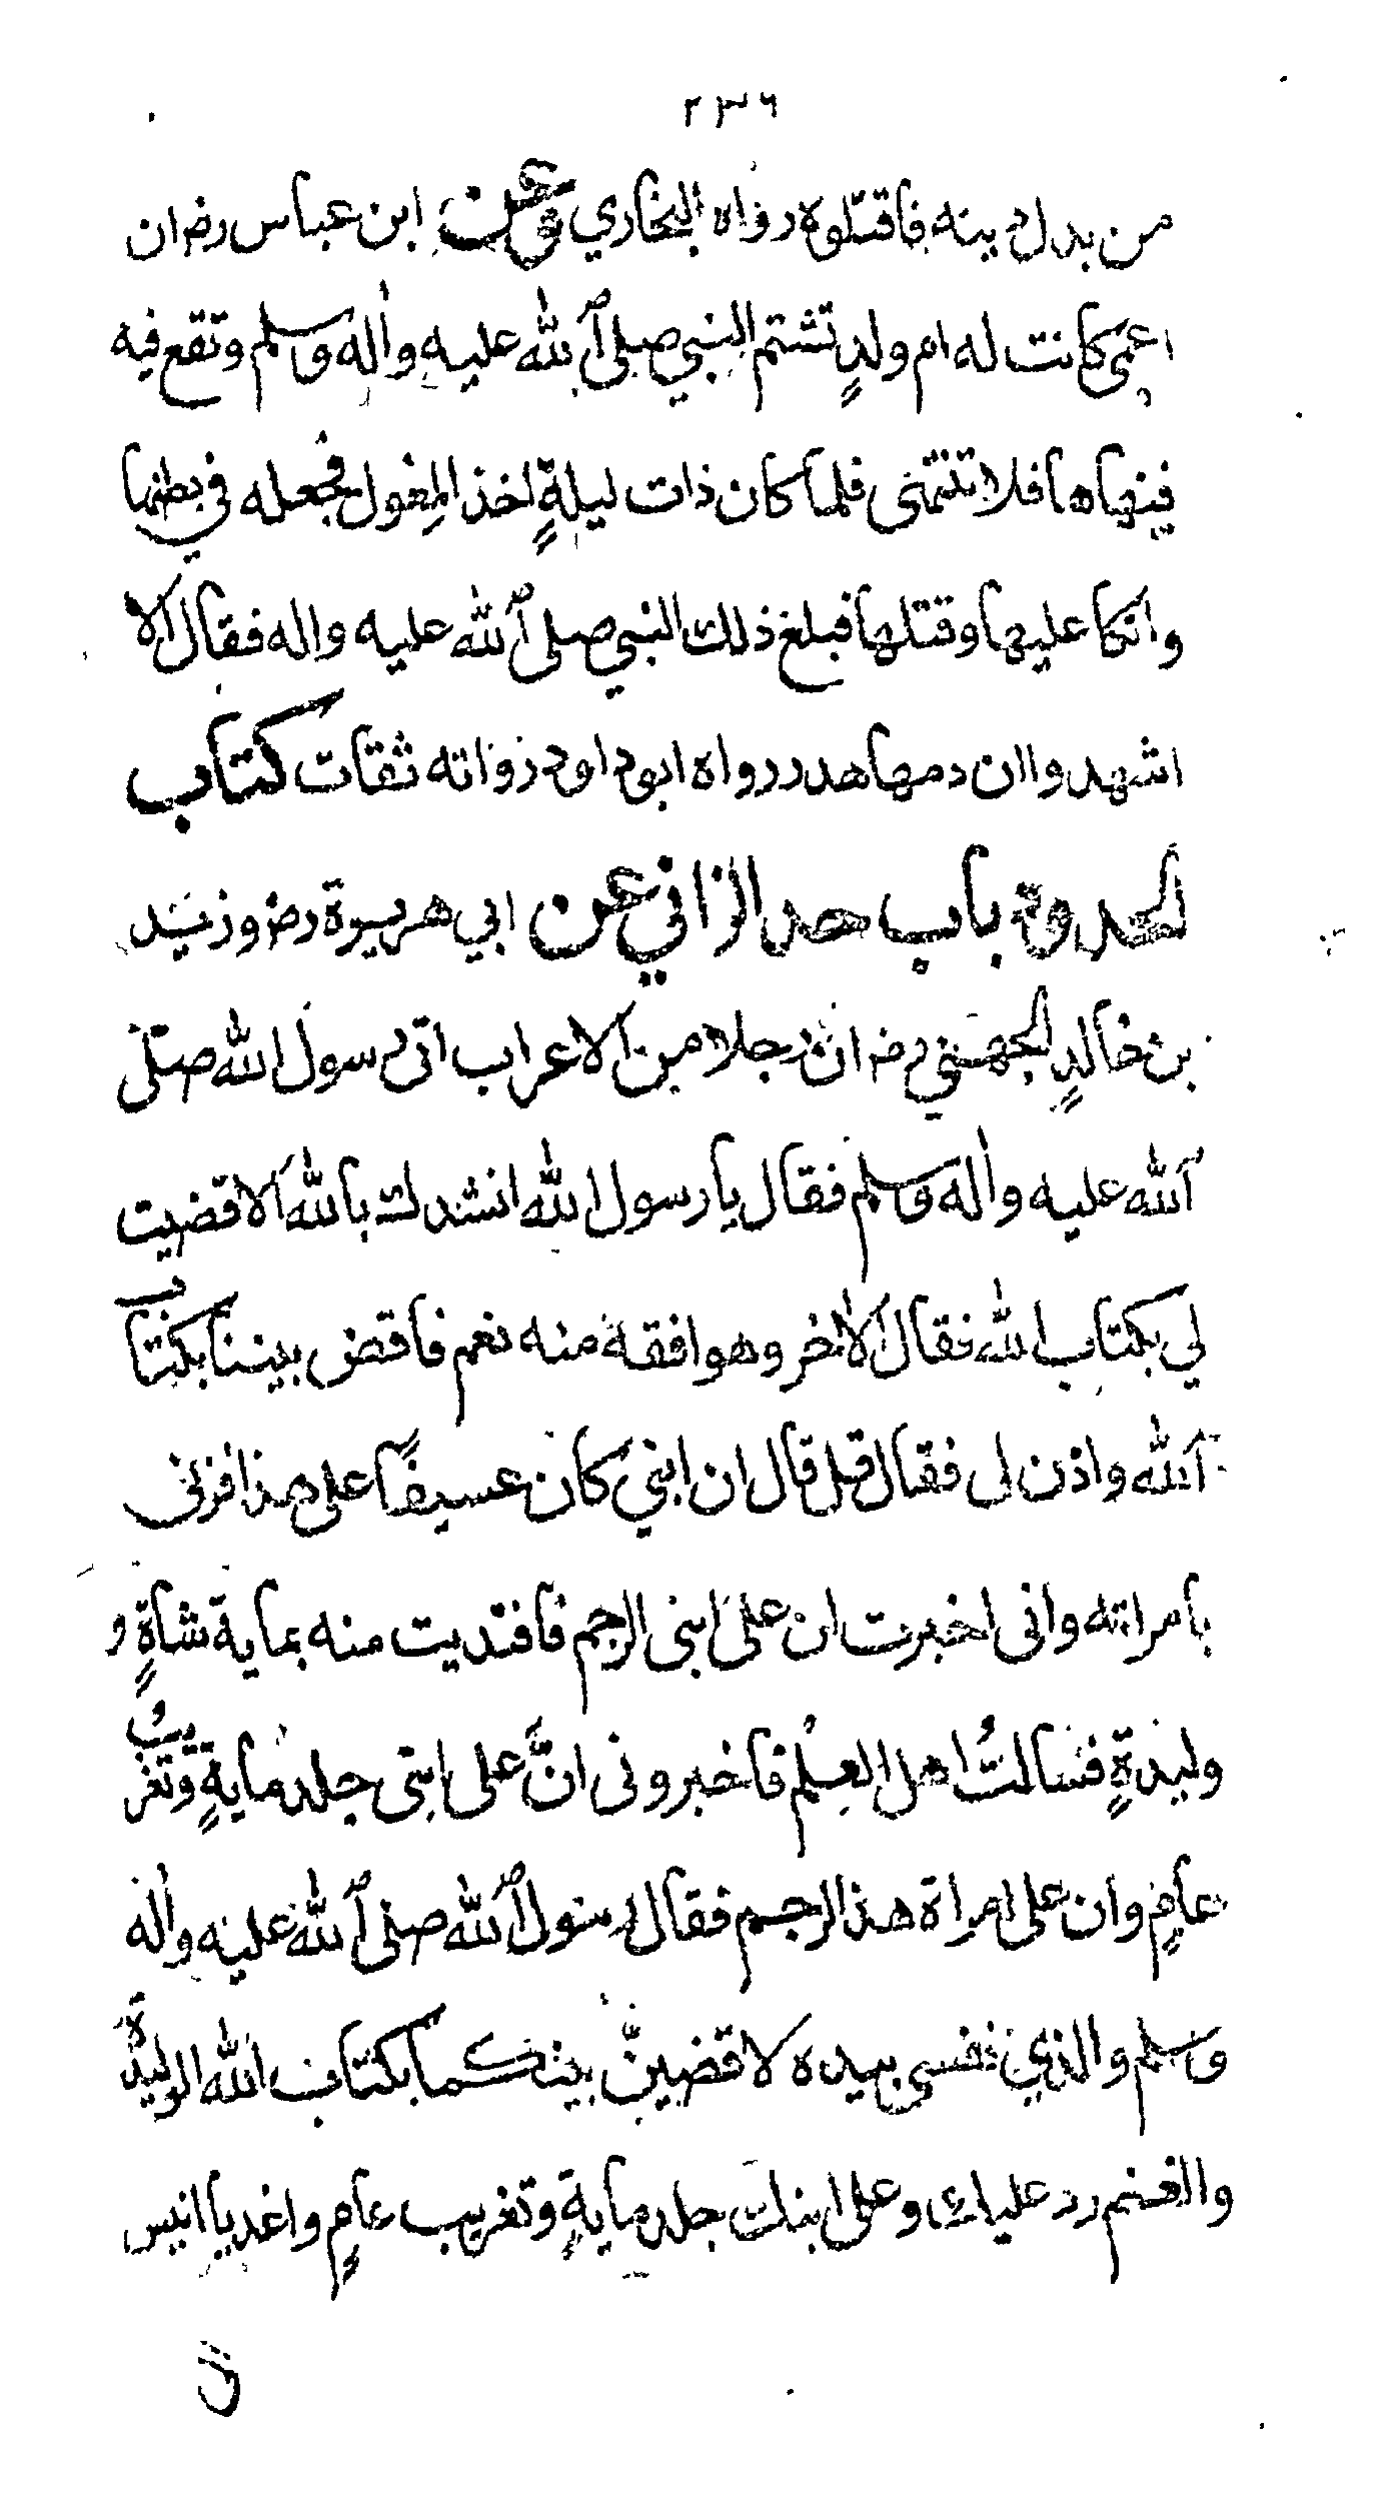 ٢٣٦
من بدل دينه فاقتلوه رواه البخاري وعن ابن عباس رض ان
اعمى كانت له ام ولدٍ تشتم النبي صلى الله عليه واله وسلم وتقع فيه
فينهاها فلا تنتهى فلما كان ذات ليلةٍ اخذ المِغول فجعله في بطنها
واتكا عليها وقتلها فبلغ ذلك النبي صلى الله عليه واله فقال الا
اشهدوا ان دمها هدر رواه ابو داود رواته ثقات كتاب
الحدود باب حد الزاني عن ابي هريرة رض وزيد
بن خالدٍ الجهني رض ان رجلا من الاعراب اتى رسول الله صلى
الله عليه واله وسلم فقال يا رسول الله انشدك بالله الا قضيت
لي بكتاب الله فقال الاخر وهو افقه منه نعم فاقض بيننا بكتاب
الله واذن لى فقال قل قال ان ابني كان عسيفًا على هذا فزنى
بامراته وانى اخبرت ان على ابنى الرجم فافتديت منه بماية شاةٍ و
وليدةٍ فسالتُ اهل العِلم فاخبرونى انَّ على ابنى جلد مايةٍ وتغريبُ
عامٍ وان على امراة هذا الرجم فقال رسول الله صلى الله عليه واله
وسلم والذي نفسى بيده لاقضينَّ بينكما بكتاب الله الوليدة
والغنم رد عليك وعلى ابنك جلد مايةٍ وتغريب عامٍ واغد يا انيس